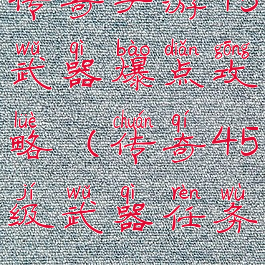 传奇手游45
wǔ qì bào diǎn gōng
武器爆点攻
lüè chuán qí
略(传奇45
jí wǔ qì rèn wù
级武器任务